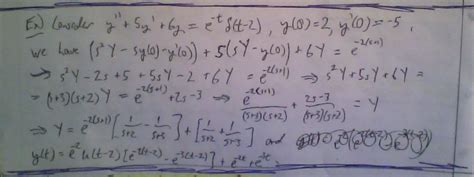 Ex) Consider y'' + 5y' + 6y = e^{-t} δ(t-2), y(0)=2, y'(0)=-5,
we have (s²Y - sy(0) - y'(0)) + 5(sY - y(0)) + 6Y = e^{-2(s+1)}
→ s²Y - 2s + 5 + 5sY - 2 + 6Y = e^{-2(s+1)} ⇒ s²Y + 5sY + 6Y =
= (s+3)(s+2)Y = e^{-2(s+1)} + 2s - 3 ⇒ e^{-2(s+1)}/((s+3)(s+2)) + (2s-3)/((s+3)(s+2)) = Y
⇒ Y = e^{-2(s+1)} [1/(s+2) - 1/(s+3)] + [1/(s+2) + 1/(s+3)] and
y(t) = e^{-2} u(t-2) [e^{-2(t-2)} - e^{-3(t-2)}] + e^{-2t} + e^{-3t}